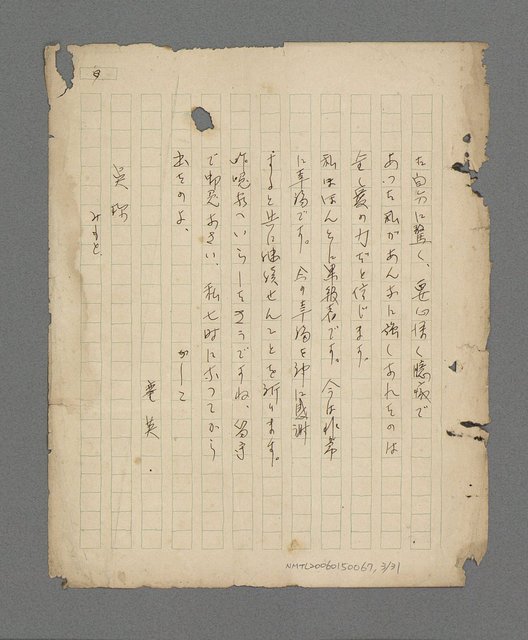 た自分に驚く、要心深く臆病で
あった私があんなに強くなれたのは
全く愛の力だと信じます。
私はほんとに果報者です。今は非常
に幸福です。今の幸福を神に感謝
すると共に永續せんことを祈ります。
昨晩あへいらしたさうですね、留守
で御免なさい、私七時になってから
出たのよ、
かしこ
英
みもと
NMTL20060150067, 3/31